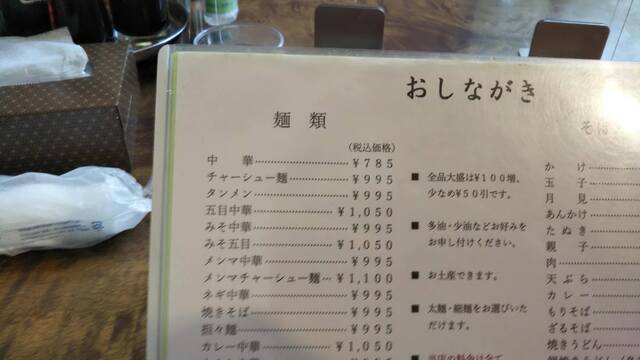 おしながき
麺類
(税込価格)
中華……¥785
チャーシュー麺……¥995
タンメン……¥995
五目中華……¥1,050
みそ中華……¥995
みそ五目……¥1,050
メンマ中華……¥995
メンマチャーシュー麺…¥1,100
ネギ中華……¥995
焼きそば……¥995
担々麺……¥995
カレー中華……¥1,050
■ 全品大盛は¥100増、
少なめ¥50引です。
■ 多油・少油などお好みを
お申し付けください。
■ お土産できます。
■ 太麺・細麺をお選びいた
だけます。
そば
かけ
玉子
月見
あんかけ
たぬき
親子
肉
天ぷら
カレー
もりそば
ざるそば
焼きうどん